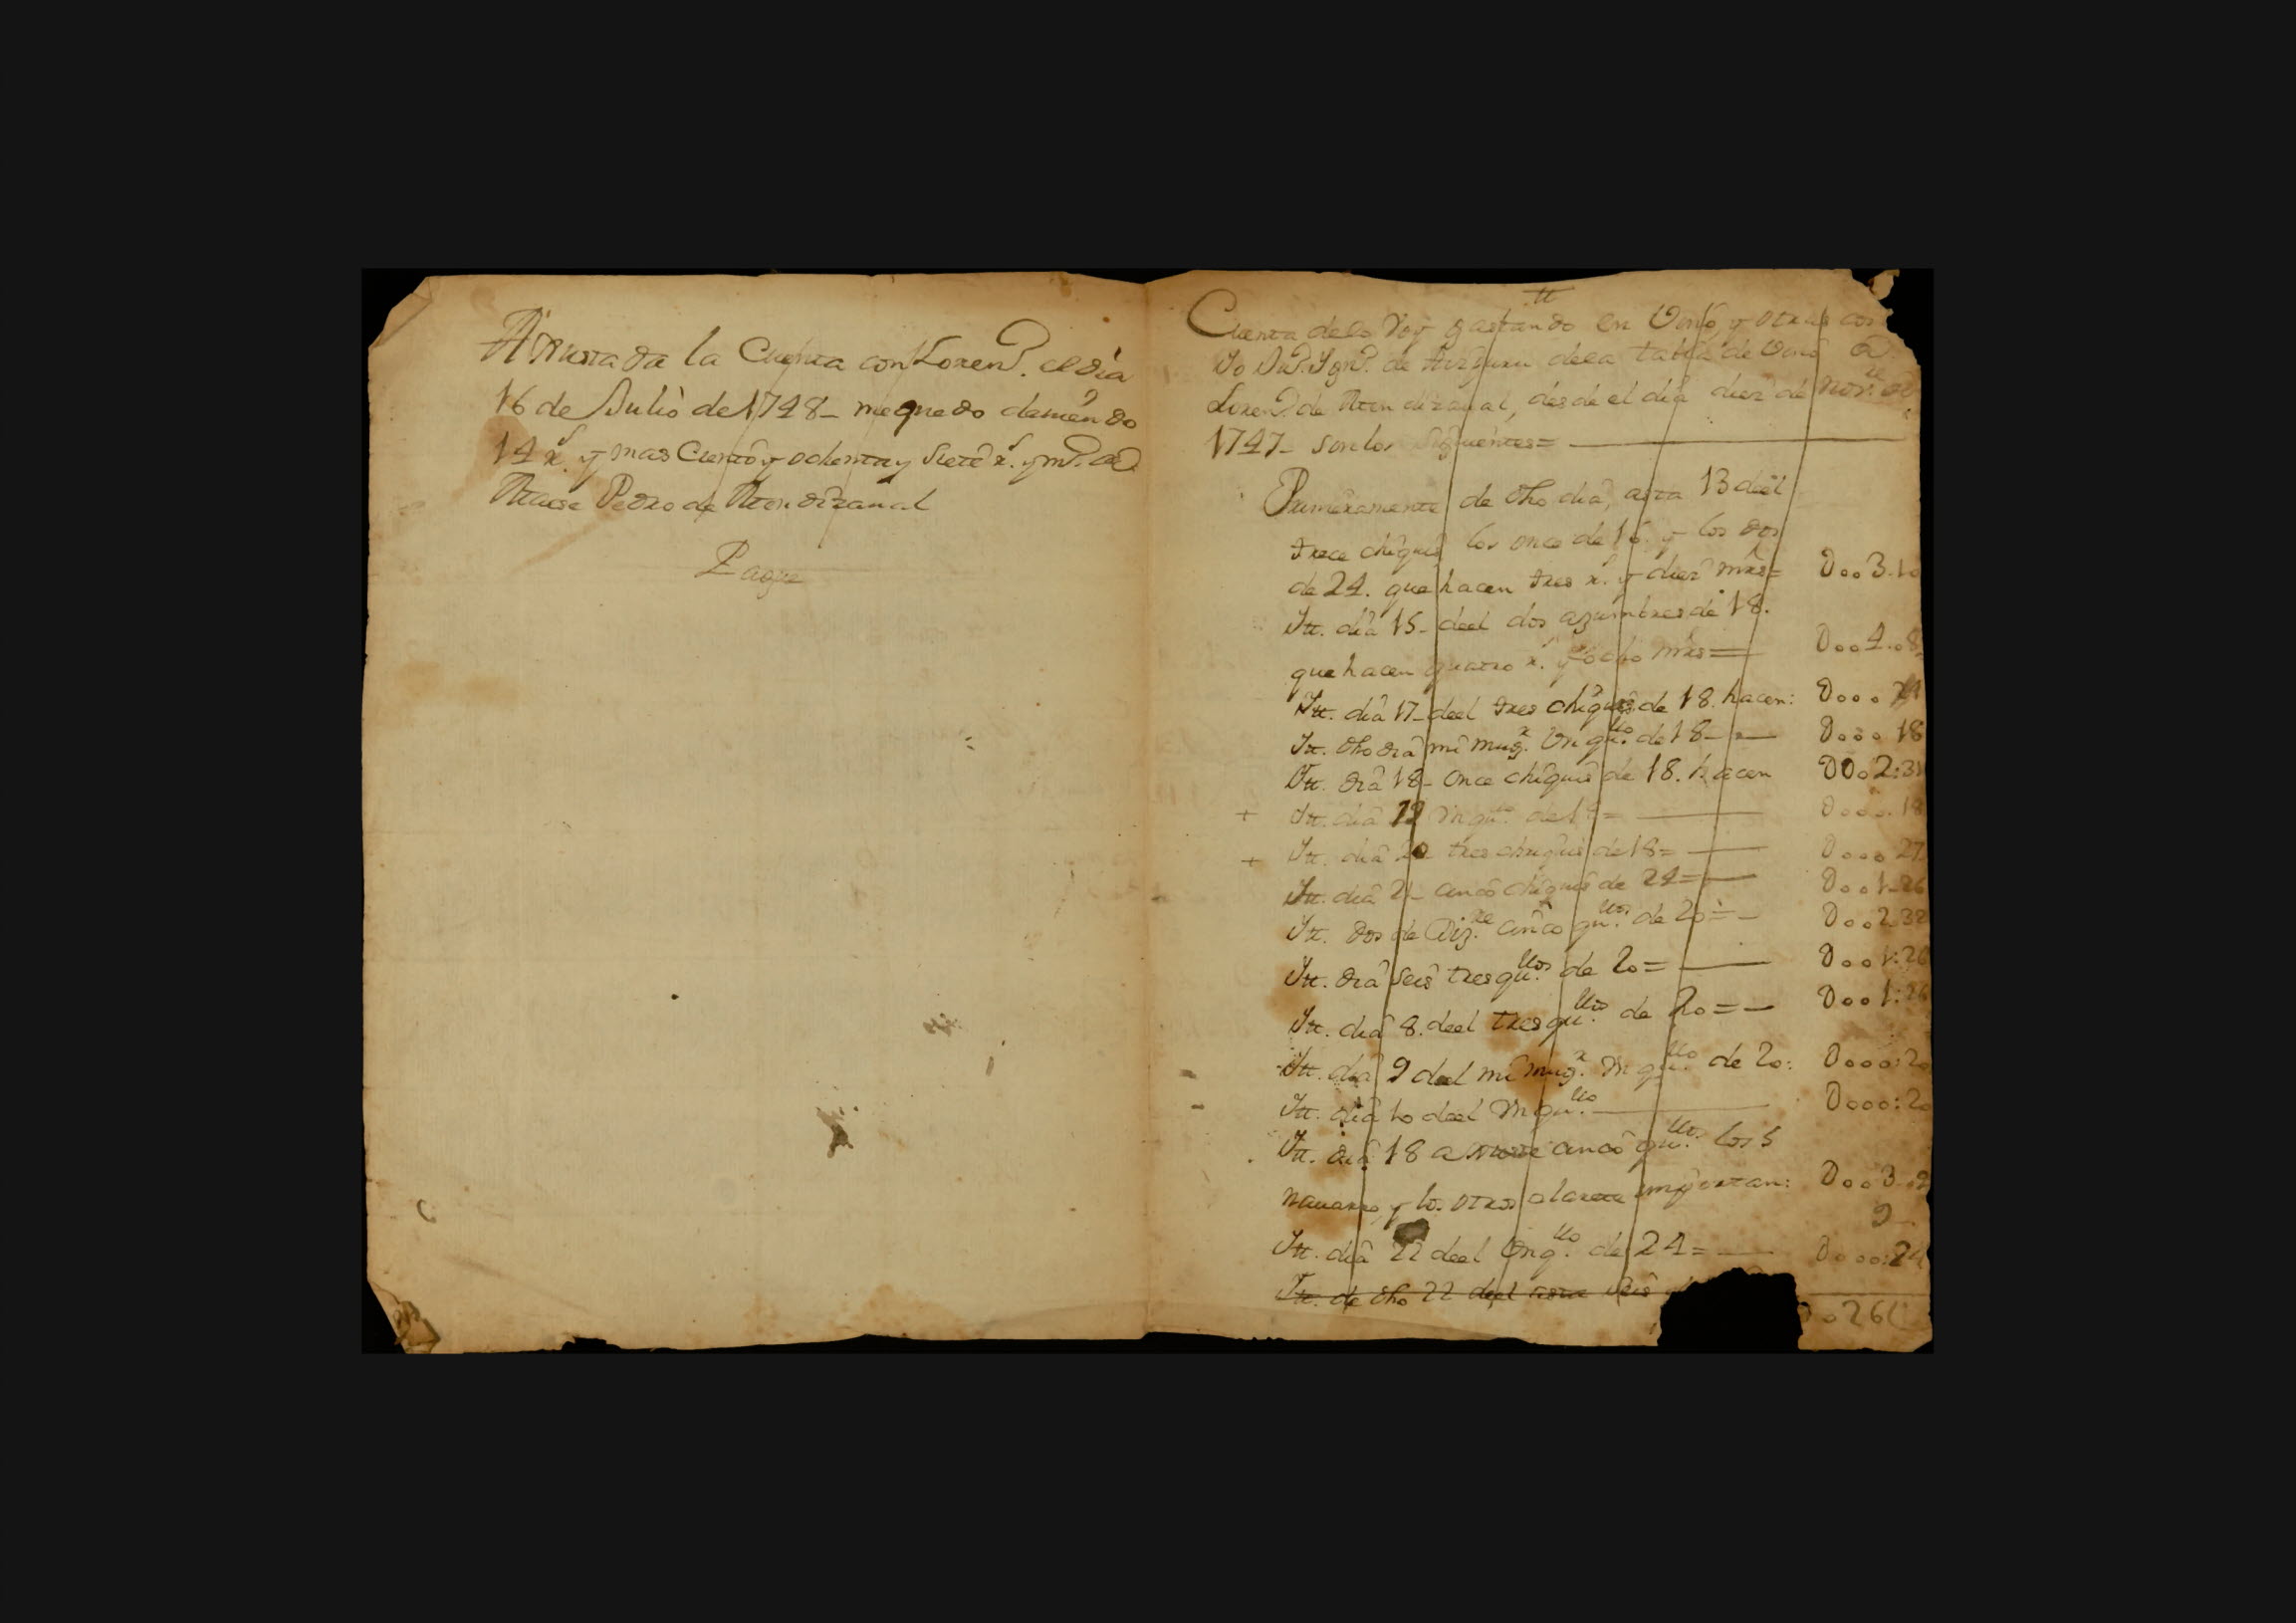 Ajustada la Cuenta con Loren.º el dia
16 de Julio de 1748 – me quedo deviendo
14 r.s y mas Ciento y ochenta y Siete r.s y m.º de
Pedro de Aren dizaual
Pague
Cuenta de lo Voy gastando en Vino, y otras cos
Yo D.n Ign.º de dela tabla de Vino de
Loren.º de Aren dizaual, desde el dia diez de Nov.re de
1747 – son los Siguientes =
Primeramente de dho dia, asta 13 deel
trece chiquis los once de 16. y los dos
de 24. que hacen tres r.s y diez mrs = 0003.10
Itt. dia 15 – deel dos azumbres de 18.
que hacen quatro r.s y ocho mrs = 0004.08
Itt. dia 17 – deel tres chiquis de 18. hacen:
Itt. dho dia mi mug.r Un qu.llo de 18 – 0000 18
Itt. dia 18 – once chiquis de 18. hacen 0002:31
+ Itt. dia 19 Un qu.llo de 18 = 0000.18
+ Itt. dia 20 tres chiquis de 18 = 0000 27
Itt. dia 21 – cinco chiquis de 24 = 0001–26
Itt. dos de Diz.re cinco qu.llos de 20 = 0002.32
Itt. dia seis tres qu.llos de 20 = 0001:26
Itt. dia 8. deel tres qu.llos de 20 = 0001:26
Itt. dia 9 deel mi mug.r Un qu.llo de 20: 0000:20
Itt. dia 10 deel Un qu.llo 0000:20
Itt. dia 18 a cinco qu.llos los 5
nauarro, y los otros clarete importan: 0003.
9
Itt. dia 22 deel Un q.llo de 24 = 0000:24
Itt. de dho 22 deel asta Seis
026